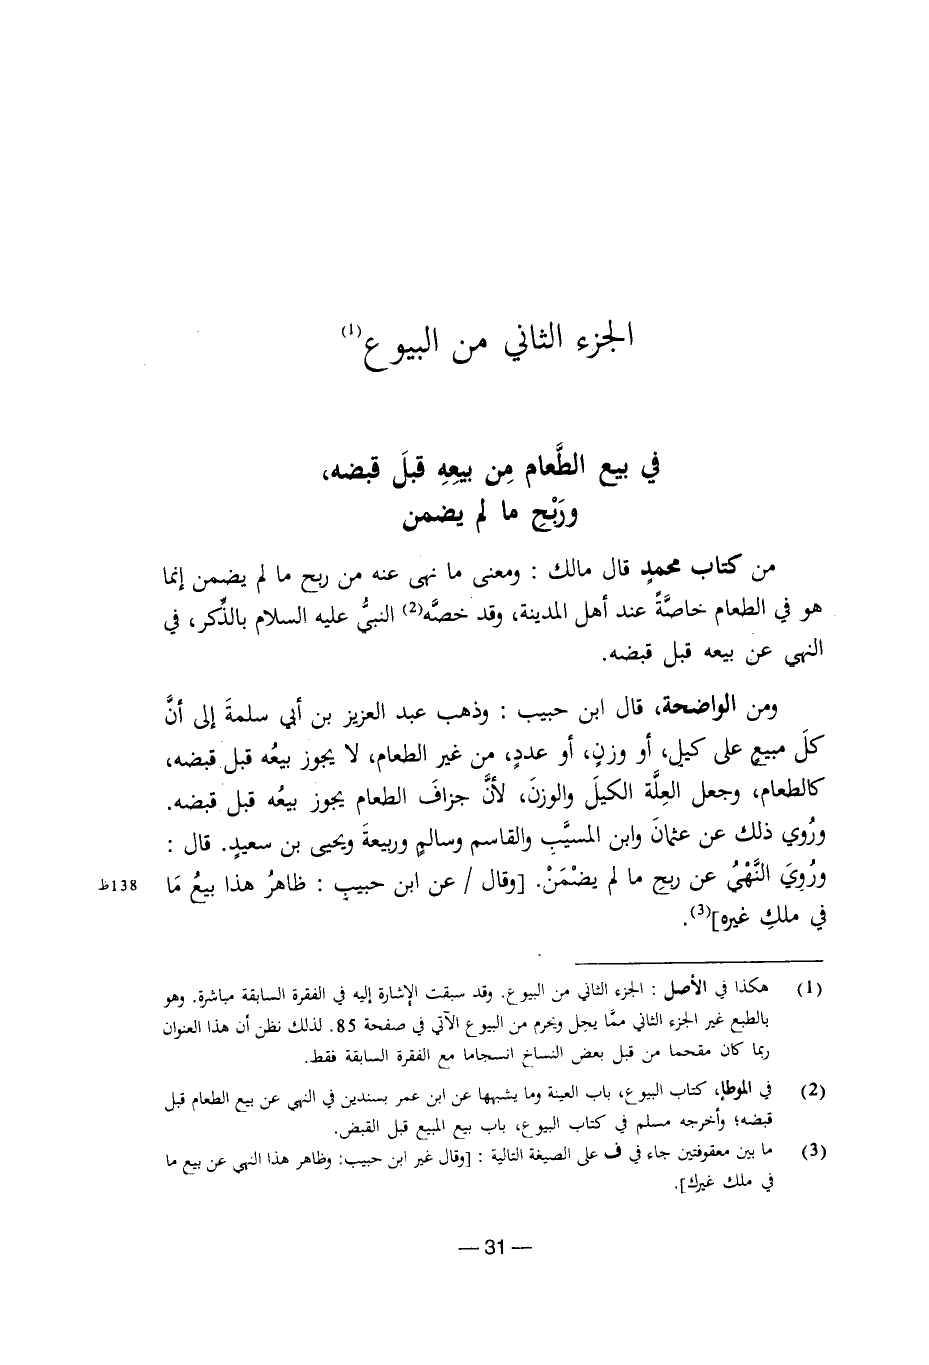 الجزء الثاني من البيوع(1)
في بيع الطَّعام مِن بيعِهِ قبلَ قبضه،
ورَبْحِ ما لم يضمن
من كتاب محمدٍ قال مالك : ومعنى ما نهى عنه من ربح ما لم يضمن إنما
هو في الطعام خاصَّةً عند أهل المدينة، وقد خصَّه(2) النبيُّ عليه السلام بالذِّكر، في
النهي عن بيعه قبل قبضه.
ومن الواضحة، قال ابن حبيب : وذهب عبد العزيز بن أبي سلمةَ إلى أنَّ
كلَ مبيعٍ على كيلٍ، أو وزنٍ، أو عددٍ، من غير الطعام، لا يجوز بيعُه قبل قبضه،
كالطعام، وجعل العِلَّة الكيلَ والوزنَ، لأنَّ جزافَ الطعام يجوز بيعُه قبل قبضه.
ورُوي ذلك عن عثمانَ وابن المسيَّب والقاسم وسالمٍ وربيعةَ ويحيى بن سعيدٍ. قال :
ورُوِيَ النَّهْيُ عن ربحِ ما لم يضْمَنْ. [وقال / عن ابن حبيبٍ : ظاهرُ هذا بيعُ مَا 138ظ
في ملكِ غيره](3).
(1) هكذا في الأصل : الجزء الثاني من البيوع. وقد سبقت الإشارة إليه في الفقرة السابقة مباشرة. وهو
بالطبع غير الجزء الثاني ممَّا يحل ويحرم من البيوع الآتي في صفحة 85. لذلك نظن أن هذا العنوان
ربما كان مقحما من قبل بعض النساخ انسجاما مع الفقرة السابقة فقط.
(2) في الموطإ، كتاب البيوع، باب العينة وما يشبهها عن ابن عمر بسندين في النهي عن بيع الطعام قبل
قبضه؛ وأخرجه مسلم في كتاب البيوع، باب بيع المبيع قبل القبض.
(3) ما بين معقوفتين جاء في ف على الصيغة التالية : [وقال غير ابن حبيب: وظاهر هذا النهي عن بيع ما
في ملك غيرك].
— 31 —